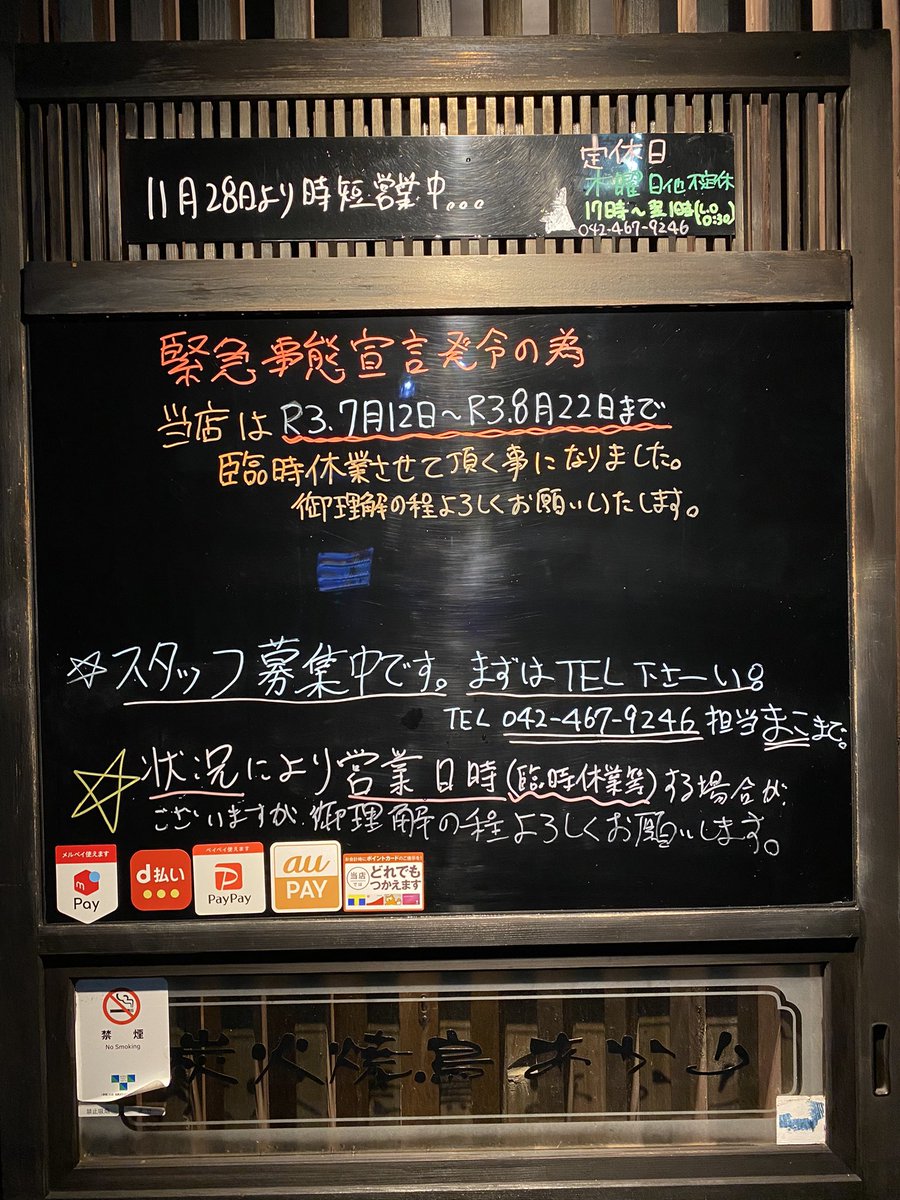 11月28日より時短営業中...
定休日
木曜日他不定休
17時〜翌1時(L.O 0:30)
042-467-9246
緊急事態宣言発令の為
当店はR3.7月12日〜R3.8月22日まで
臨時休業させて頂く事になりました。
御理解の程よろしくお願いいたします。
☆スタッフ募集中です。まずはTEL下さーい。
TEL 042-467-9246 担当まこまで。
☆状況により営業日時(臨時休業等)する場合が
ございますが、御理解の程よろしくお願いします。
メルペイ使えます
m Pay
d払い
ペイペイ使えます
PayPay
au PAY
お会計時にポイントカードのご提示を!
当店では
どれでもつかえます
禁煙
No Smoking
炭火焼鳥